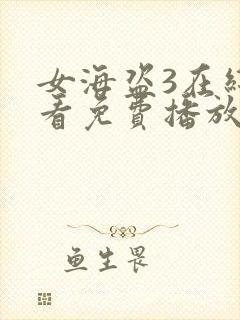 女海盗3在线
看免费播放
鱼生畏